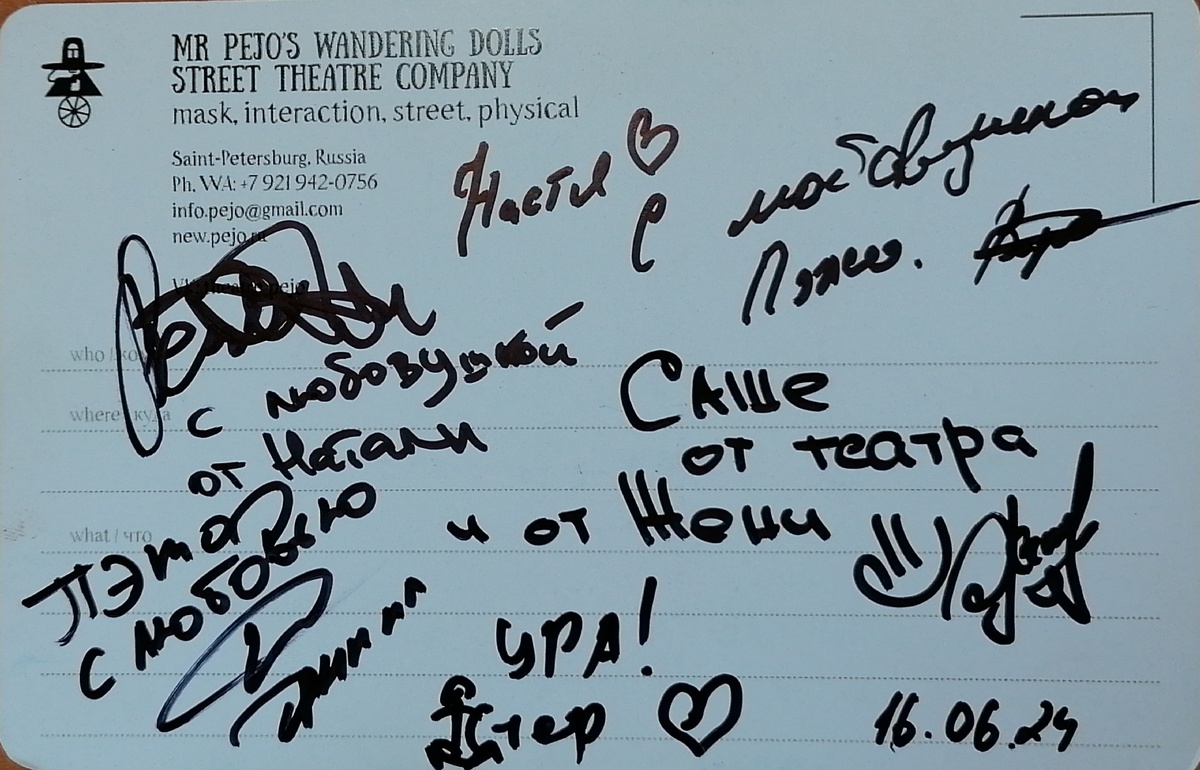 MR PEJO'S WANDERING DOLLS
STREET THEATRE COMPANY
mask, interaction, street, physical
Saint-Petersburg, Russia
Ph. WA: +7 921 942-0756
info.pejo@gmail.com
new.pejo.
Настя
с
Пэжо.
who /
с любовушкой
where / куда
от Натали
Саше
от театра
what / что
и от Жени
с любовью
УРА!
Питер
16.06.24